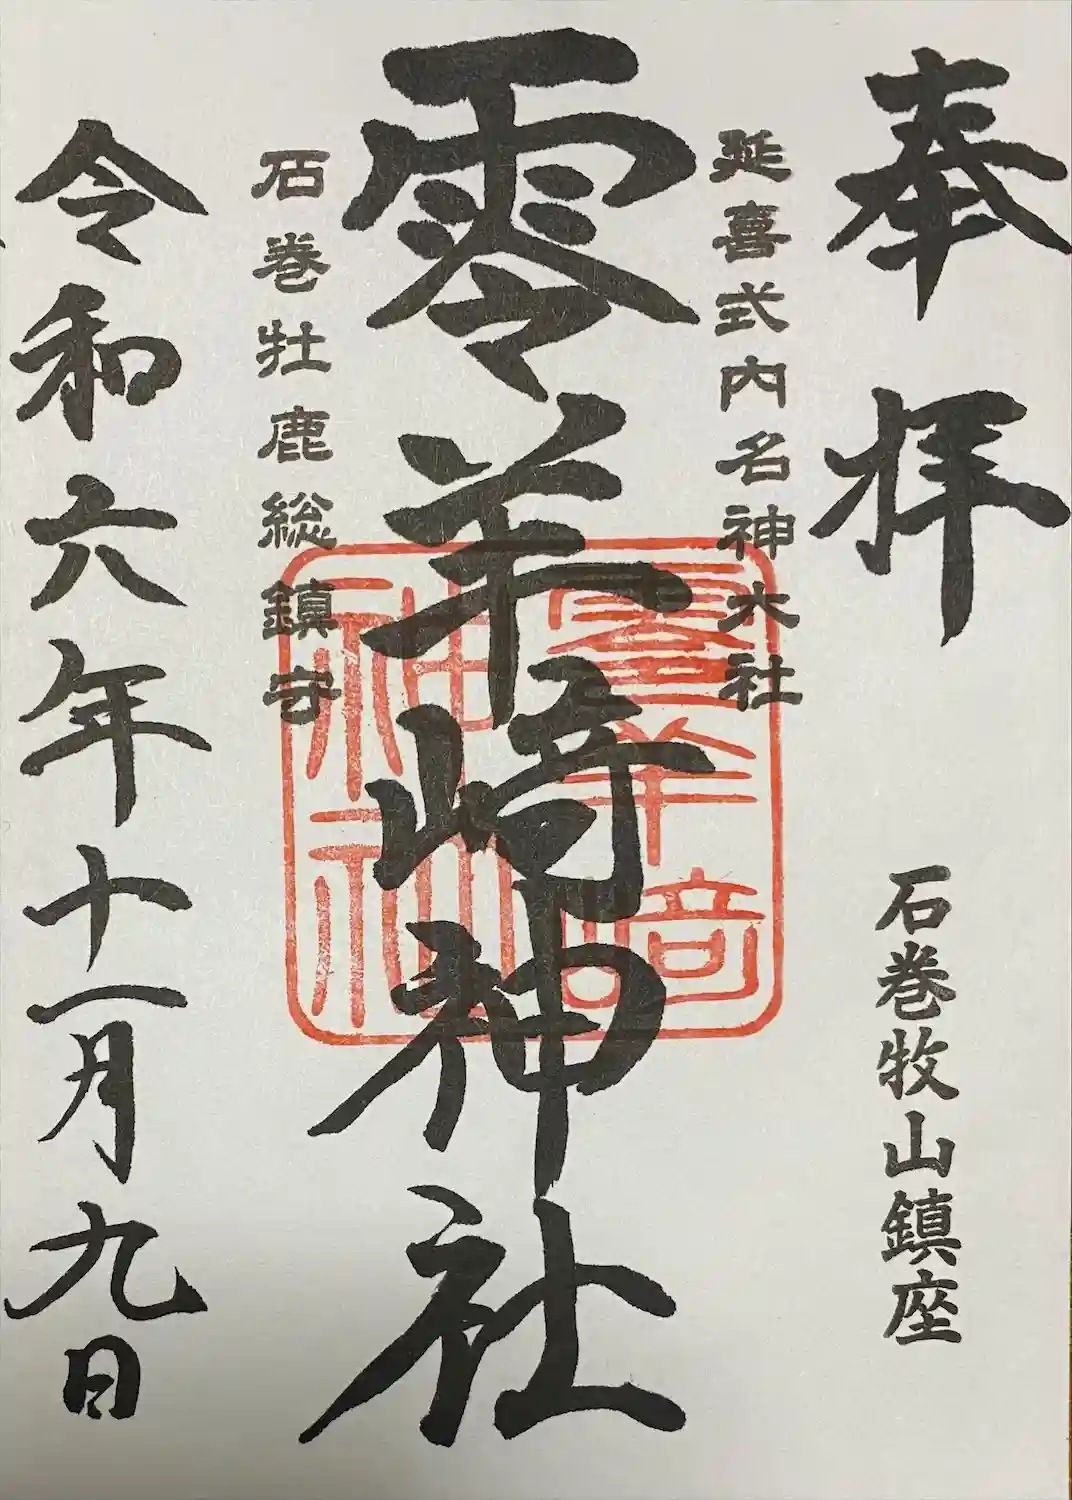 奉拝
石巻牧山鎮座
延喜式内名神大社
零羊崎神社
石巻牡鹿総鎮守
零羊崎
神社
令和六年十一月九日